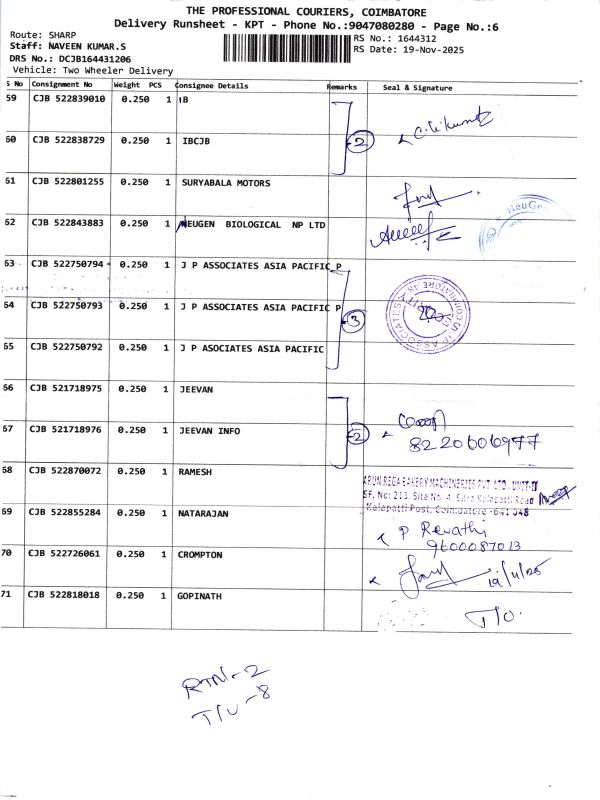 THE PROFESSIONAL COURIERS, COIMBATORE
Delivery Runsheet - KPT - Phone No.:9047080280 - Page No.:6
Route: SHARP
RS No.: 1644312
Staff: NAVEEN KUMAR.S
RS Date: 19-Nov-2025
DRS No.: DCJB164431206
Vehicle: Two Wheeler Delivery
S No Consignment No Weight PCS Consignee Details Remarks Seal & Signature
59 CJB 522839010 0.250 1 IB
60 CJB 522838729 0.250 1 IBCJB 2
61 CJB 522801255 0.250 1 SURYABALA MOTORS
62 CJB 522843883 0.250 1 NEUGEN BIOLOGICAL NP LTD
63 CJB 522750794 0.250 1 J P ASSOCIATES ASIA PACIFIC P
64 CJB 522750793 0.250 1 J P ASSOCIATES ASIA PACIFIC P 3
65 CJB 522750792 0.250 1 J P ASOCIATES ASIA PACIFIC
66 CJB 521718975 0.250 1 JEEVAN
67 CJB 521718976 0.250 1 JEEVAN INFO 2 8220606977
68 CJB 522870072 0.250 1 RAMESH
ARUN REGA BAKERY MACHINERIES PVT LTD. UNIT-II
SF. No: 213, Site No: 4 Sitra Kalapatti Road
Kalapatti Post, Coimbatore -641 048
69 CJB 522855284 0.250 1 NATARAJAN
P Revathi
9600087013
70 CJB 522726061 0.250 1 CROMPTON 19/11/25
71 CJB 522818018 0.250 1 GOPINATH T/O.
RTN-2
T/U-8